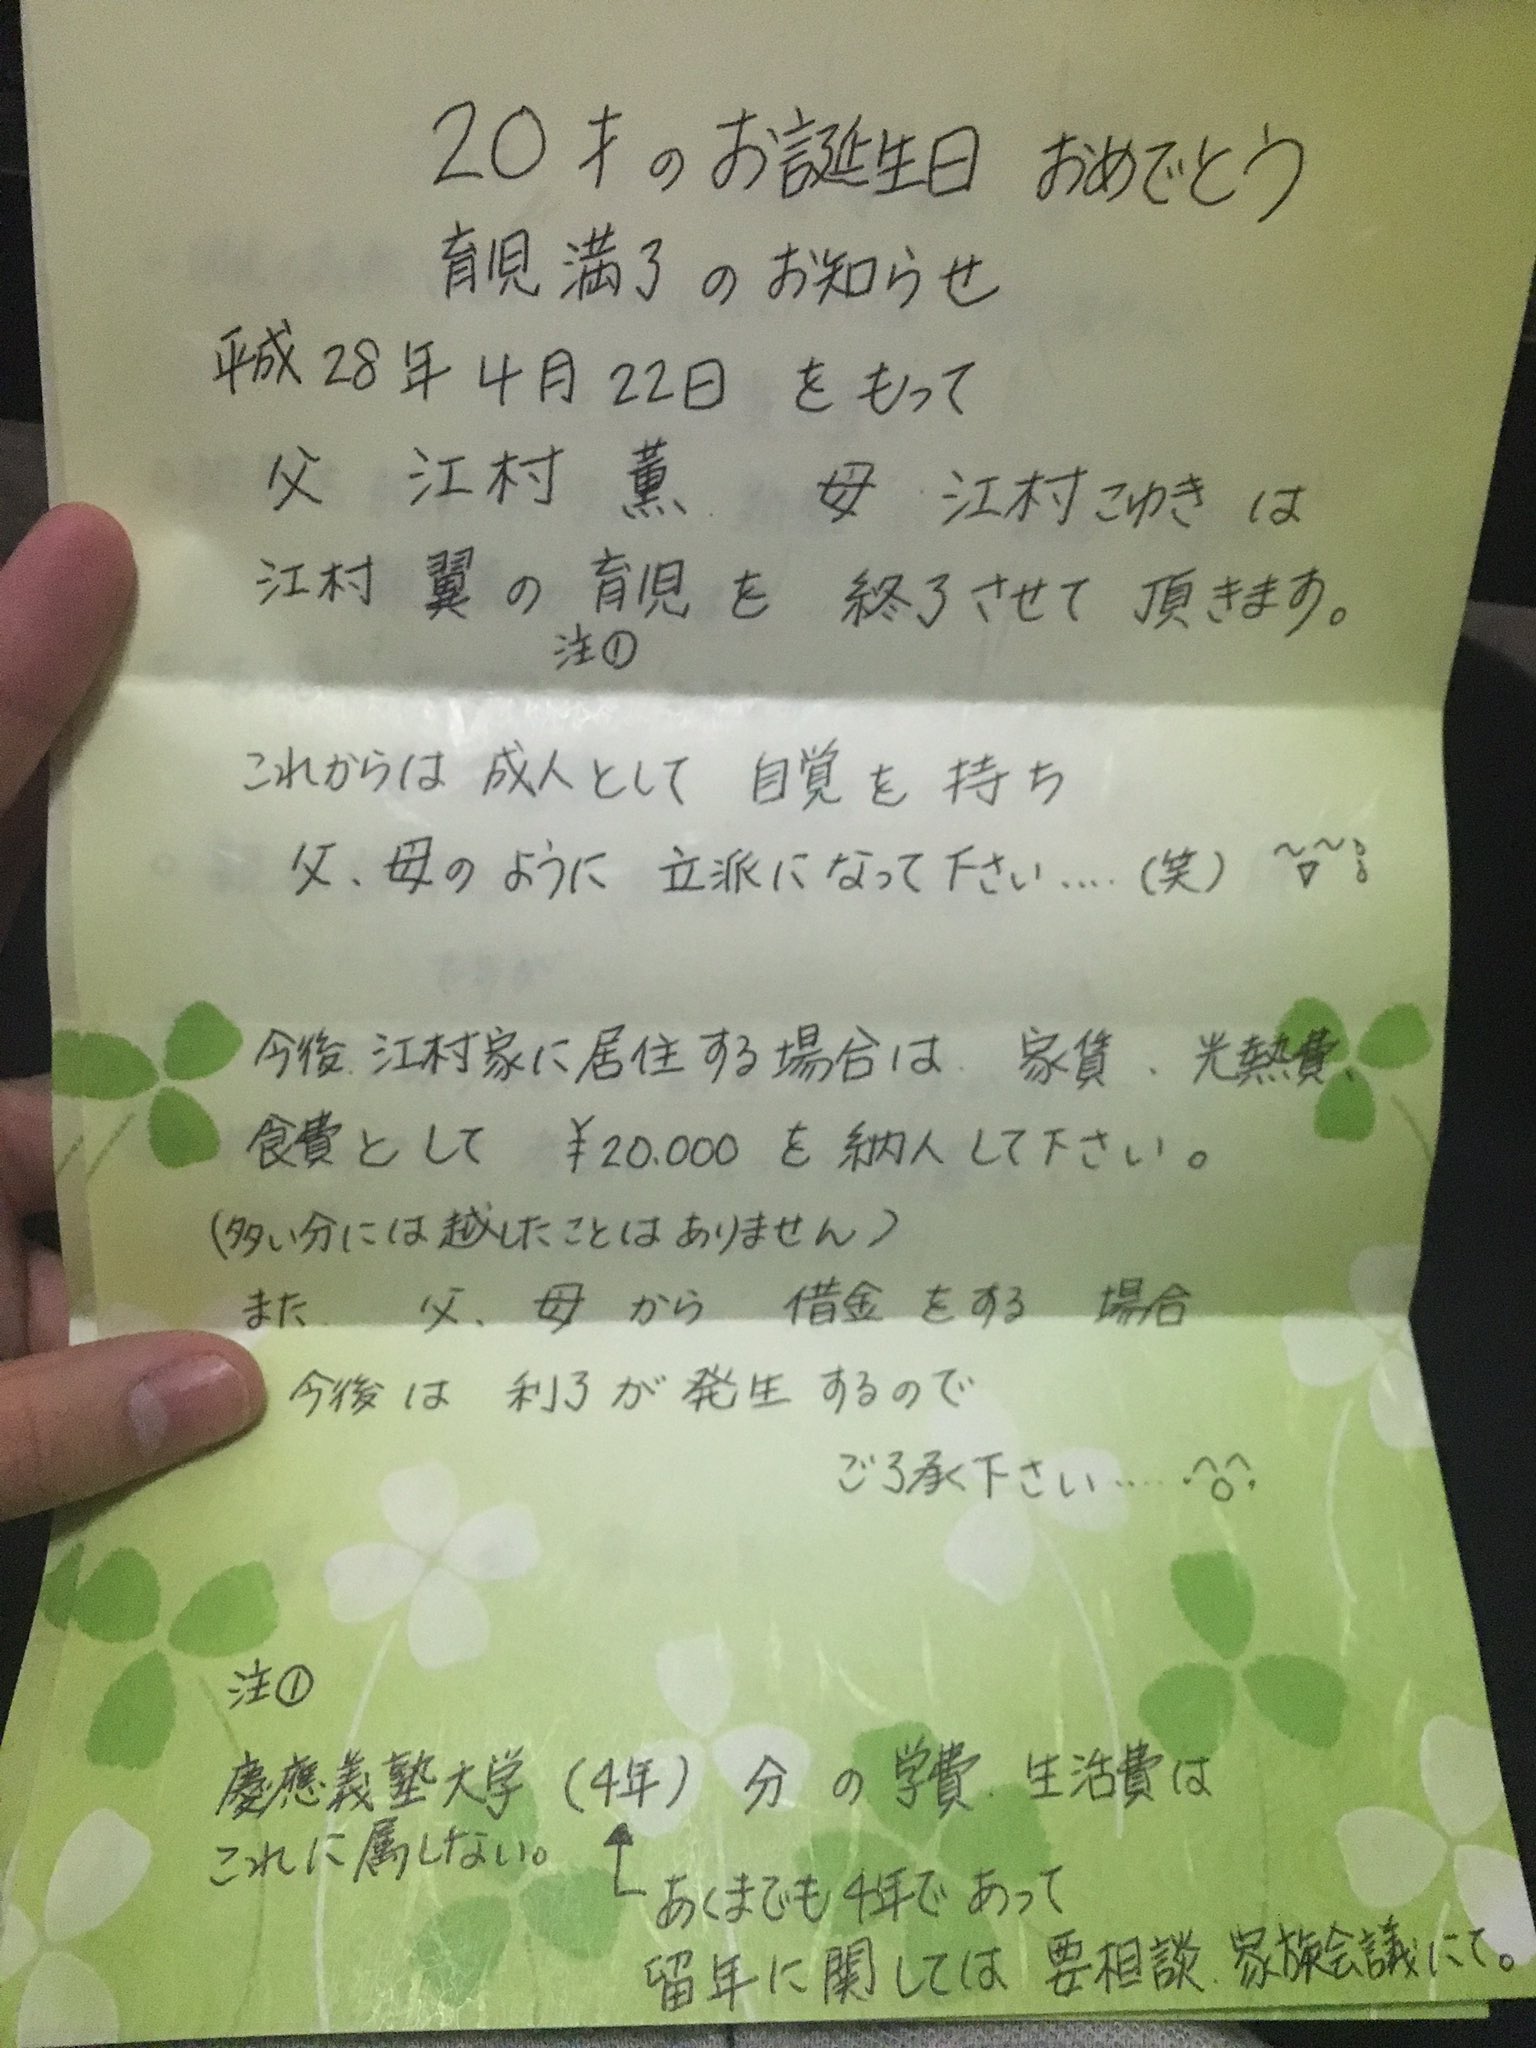 20才のお誕生日 おめでとう
育児満了のお知らせ
平成28年4月22日 をもって
父 江村 薫 母 江村こゆき は
江村 翼の育児を 終了させて頂きます。
注①
これからは成人として 自覚を持ち
父、母のように 立派になって下さい....(笑)
今後 江村家に居住する場合は 家賃、光熱費、
食費として ¥20.000を納入して下さい。
(多い分には越したことはありません)
また 父、母から 借金をする 場合
今後は 利子が発生するので
ご了承く下さい.....^o^
注①
慶應義塾大学(4年)分の学費、生活費は
これに属しない。
あくまでも4年であって
留年に関しては要相談、家族会議にて。